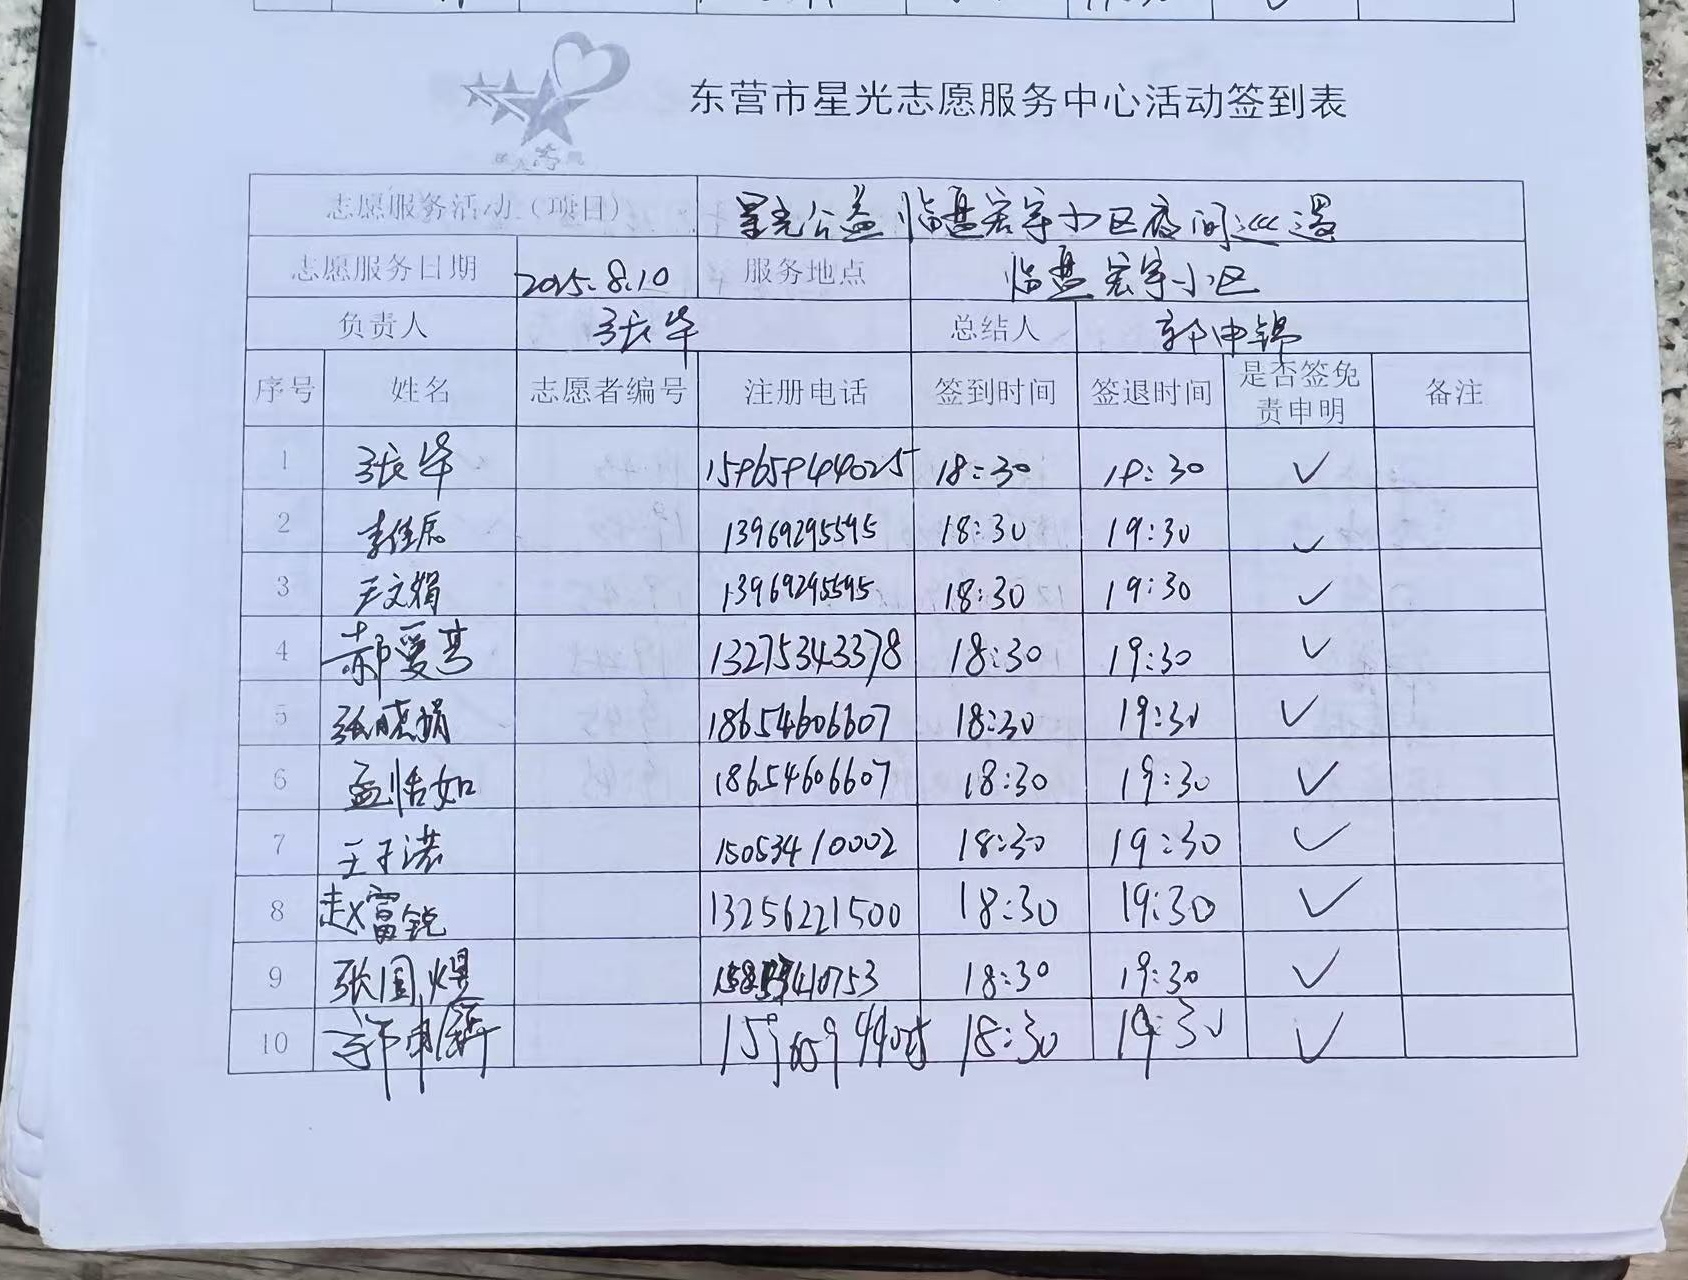 东营市星光志愿服务中心活动签到表
志愿服务活动（项目） 星光公益 临盘宏宇小区夜间巡逻
志愿服务日期 2025.8.10 服务地点 临盘宏宇小区
负责人 张华 总结人 郭申锦
序号 姓名 志愿者编号 注册电话 签到时间 签退时间 是否签免责申明 备注
1 张华 15965944025 18:30 19:30 ✓
2 李佳辰 13969295595 18:30 19:30 ✓
3 王文娟 13969295595 18:30 19:30 ✓
4 郝爱 13275343378 18:30 19:30 ✓
5 张晓娟 18654606607 18:30 19:30 ✓
6 孟恬如 18654606607 18:30 19:30 ✓
7 王子诺 15053410002 18:30 19:30 ✓
8 赵富锐 13256221500 18:30 19:30 ✓
9 张国焜 18:30 19:30 ✓
10 18:30 19:30 ✓